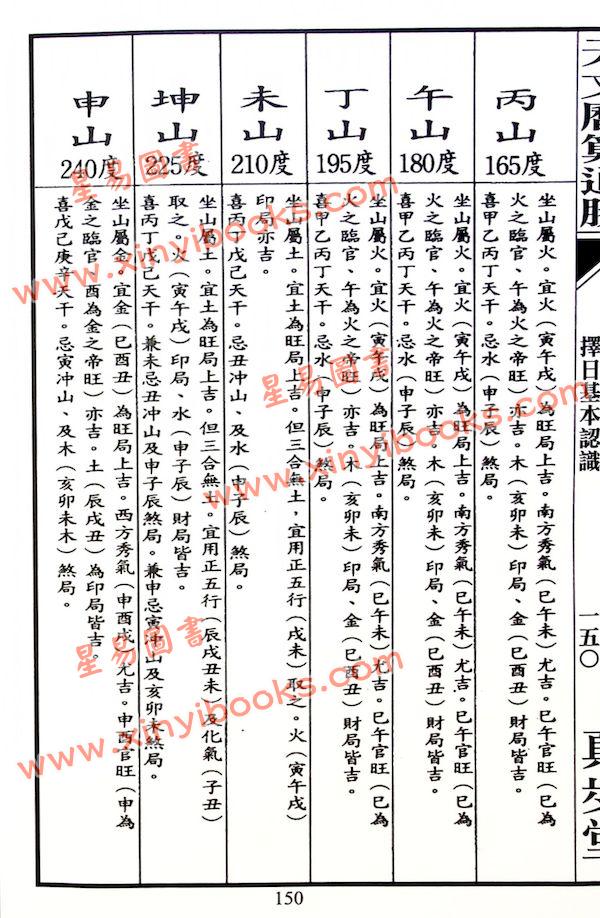 天文曆算通勝
擇日基本認識
一五〇
真步堂
丙山
165度
坐山屬火。宜火(寅午戌)為旺局上吉。南方秀氣(巳午未)尤吉。巳午官旺(巳為
火之臨官、午為火之帝旺)亦吉。木(亥卯未)印局、金(巳酉丑)財局皆吉。
喜甲乙丙丁天干。忌水(申子辰)煞局。
午山
180度
坐山屬火。宜火(寅午戌)為旺局上吉。南方秀氣(巳午未)尤吉。巳午官旺(巳為
火之臨官、午為火之帝旺)亦吉。木(亥卯未)印局、金(巳酉丑)財局皆吉。
喜甲乙丙丁天干。忌水(申子辰)煞局。
丁山
195度
坐山屬火。宜火(寅午戌)為旺局上吉。南方秀氣(巳午未)尤吉。巳午官旺(巳為
火之臨官、午為火之帝旺)亦吉。木(亥卯未)印局、金(巳酉丑)財局皆吉。
喜甲乙丙丁天干。忌水(申子辰)煞局。
未山
210度
坐山屬土 宜土為旺局上吉。但三合無土,宜用正五行(戌未)取之。火(寅午戌)
印局亦吉。
喜丙丁戊己天干。忌丑冲山、及水(申子辰)煞局。
坤山
225度
坐山屬土。宜土為旺局上吉。但三合無土。宜用正五行(辰戌丑未)及化氣(子丑)
取之。火(寅午戌)印局、水(申子辰)財局皆吉。
喜丙丁戊己天干。兼未忌丑冲山及申子辰煞局。兼申忌寅冲山及亥卯未煞局。
申山
240度
坐山屬金。宜金(巳酉丑)為旺局上吉。西方秀氣(申酉戌)尤吉。申酉官旺(申為
金之臨官、酉為金之帝旺)亦吉。土(辰戌丑)為印局皆吉。
喜戊己庚辛天干。忌寅冲山、及木(亥卯未木)煞局。
150
星易圖書
www.xinyibooks.com
星易圖書
www.xinyibooks.com
星易圖書
www.xinyibooks.com